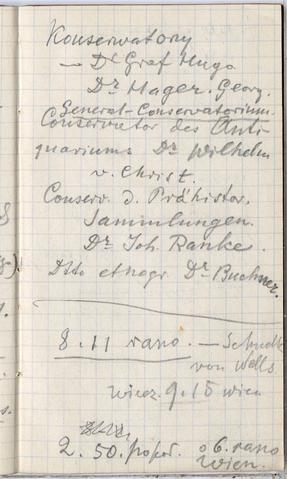 Konserwatorzy
— Dr Graf Hugo
Dr Hager. Georg.
General-Conservatorium.
Conservator des Anti
quariums Dr Wilhelm
v. Christ.
Conserv. d. Prähistor.
Sammlungen.
Dr Joh. Ranke.
Dtto etnogr. Dr Buchner.
8.11 rano. —
von Wells
wiecz. 9.15 wien
2.50. popoł. o 6. rano
Wien.